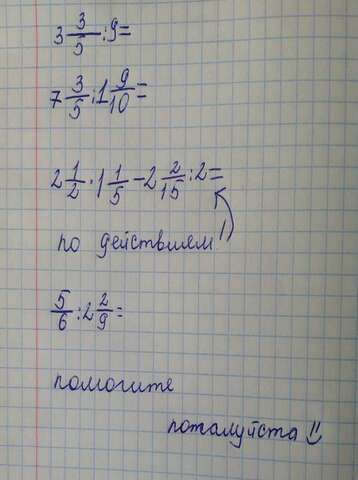 3 3/5 : 9 =
7 3/5 : 1 9/10 =
2 1/2 · 1 1/5 − 2 2/15 : 2 =
по действиям!!
5/6 : 2 2/9 =
помогите
поталуйста !!